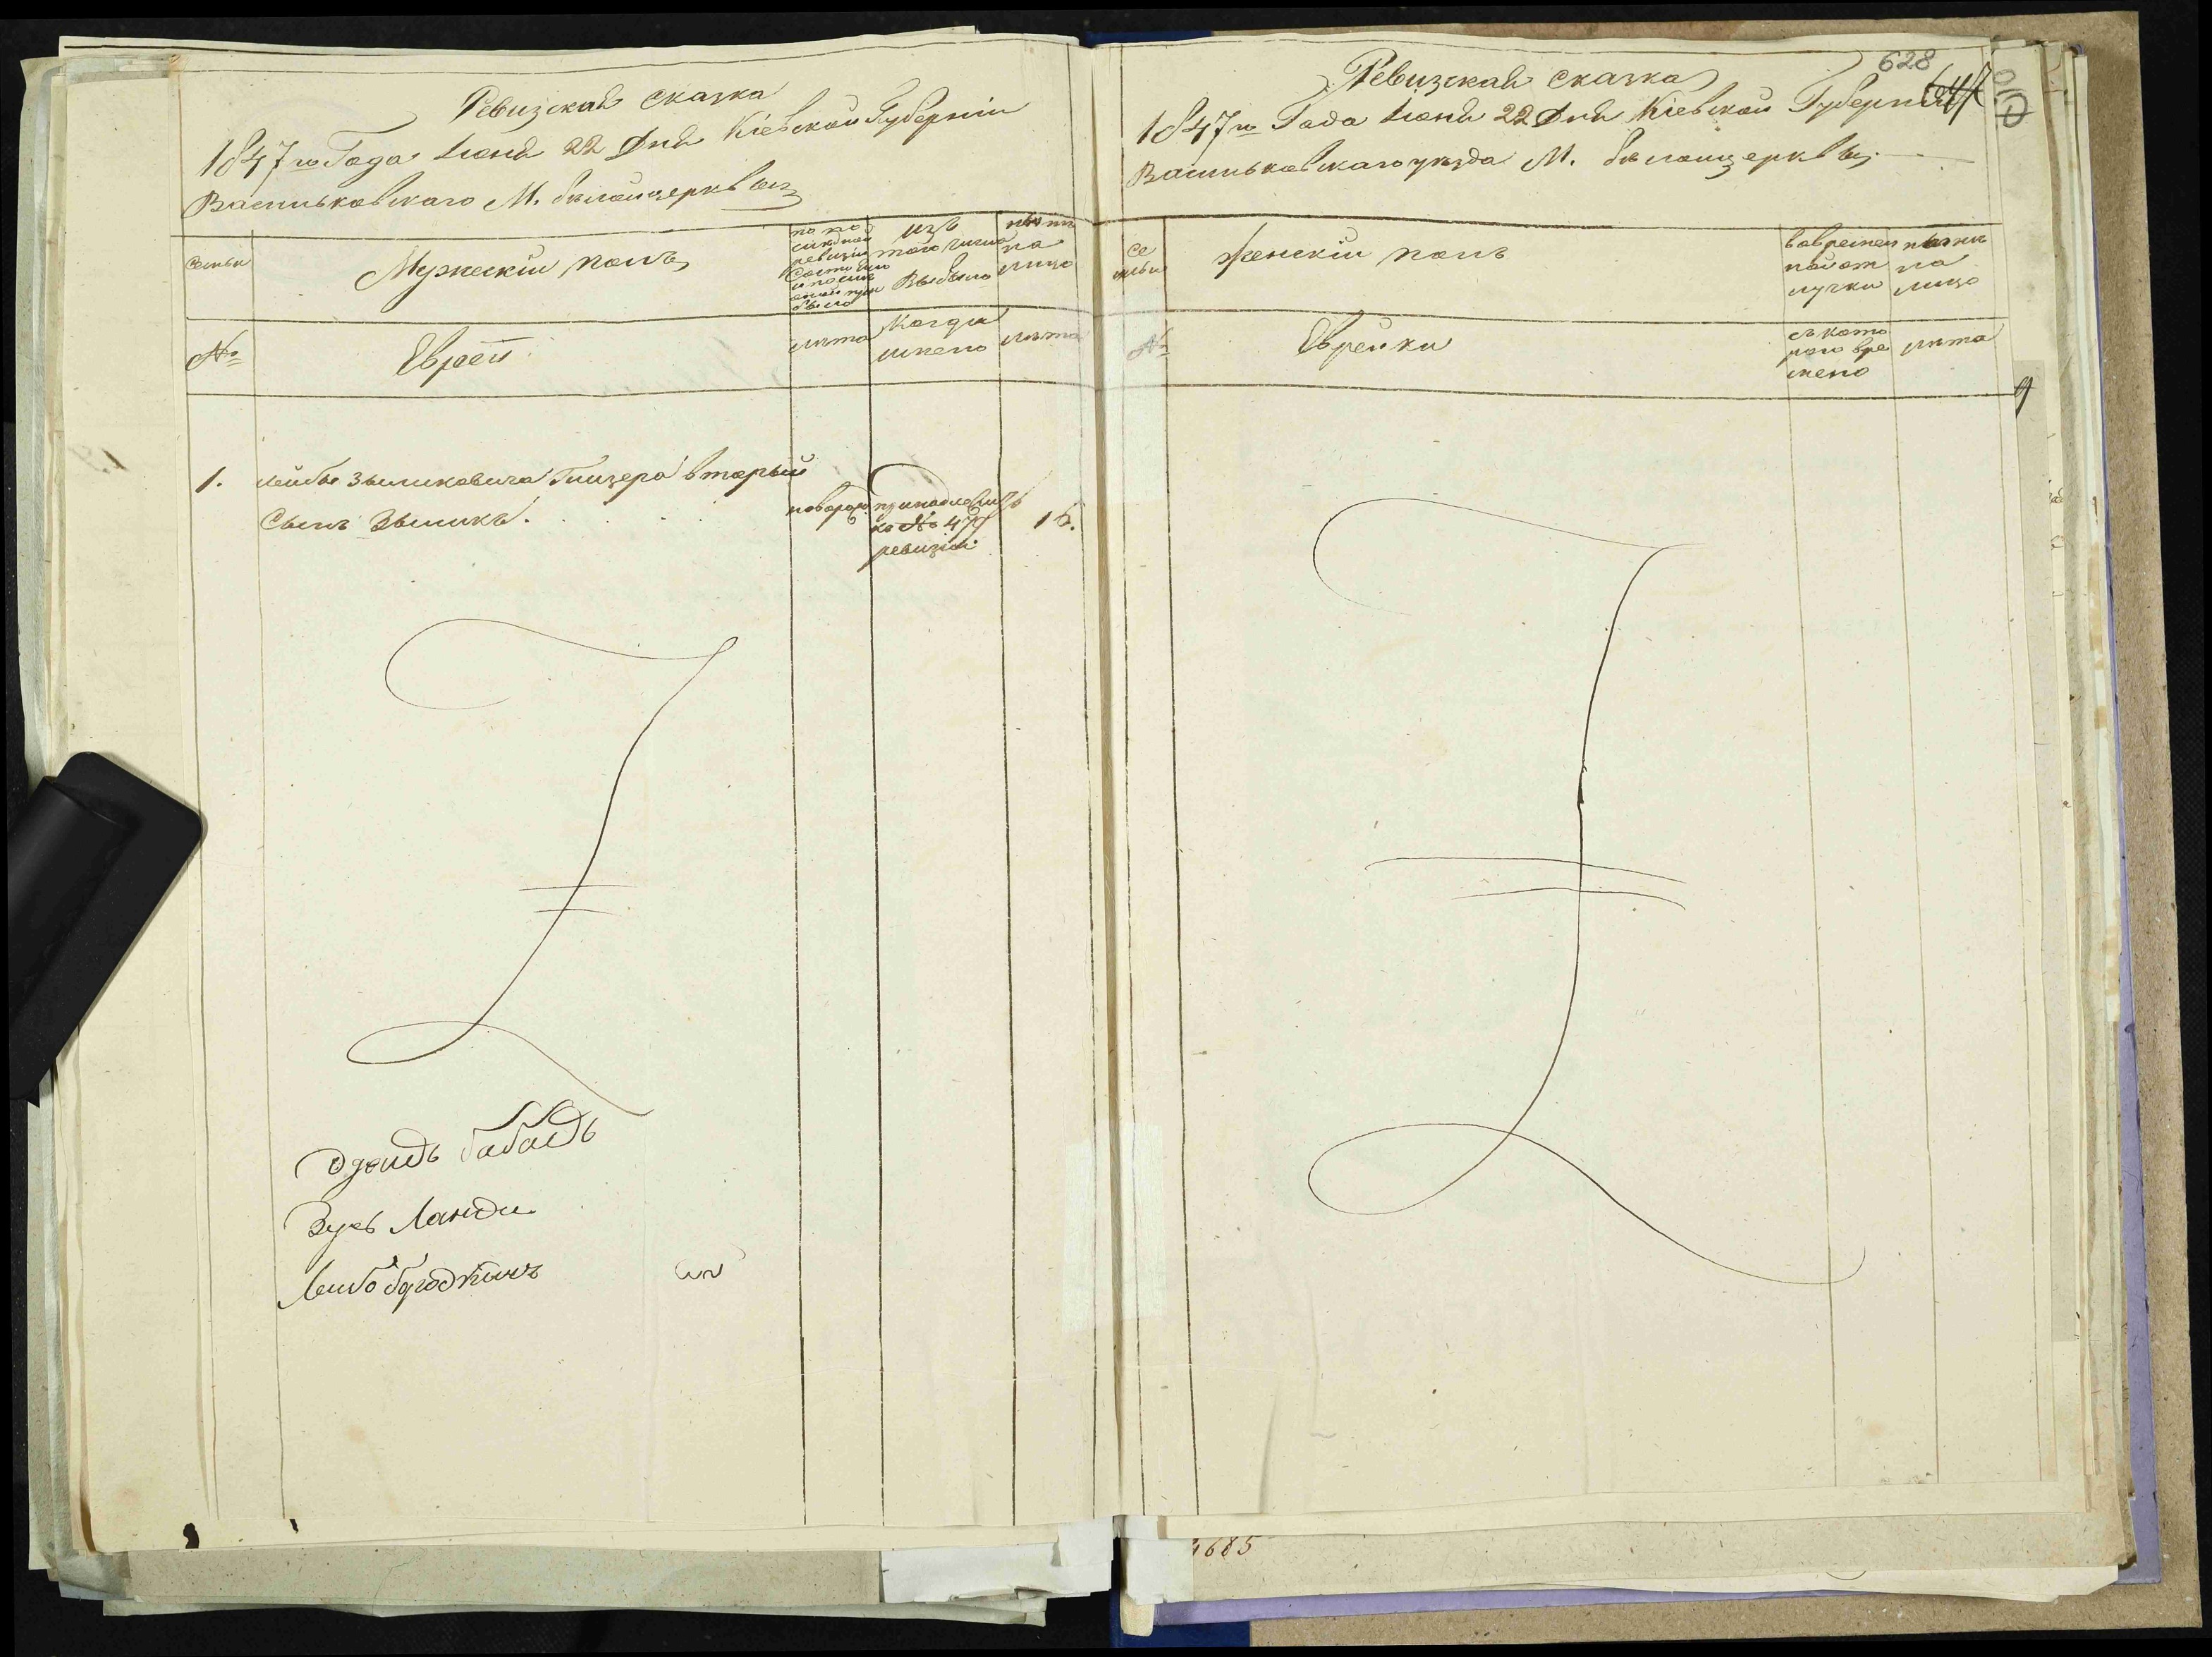 Ревизская сказка
1847го Года Июня 22 Дня Кіевской Губерніи
Васильковскаго М. бѣлойцерквы
Семьи
Мужескій полъ
по по
слѣдней
ревизіи
Состояло
и после
оной при
было
изъ
того числа
Выбыло
нынѣ
на
лицо
№
Евреи
лѣта
Когда
имено
лѣта
1. Лейбы Зыликовича Глизера вторый
Сынъ Зыликъ.
новорож принадлежитъ
ко № 479
ревизіи
16.
Лейбо
628
Ревизская сказка
1847го Года Июня 22 Дня Кіевской Губерніи
Васильковскаго уезда М. бѣлойцерквы
Се
мьи
Женскій полъ
вовремен
ной от
лучки
нынѣ
на
лицо
№
Еврейки
съ кото
рого вре
мено
лѣта
9
4685